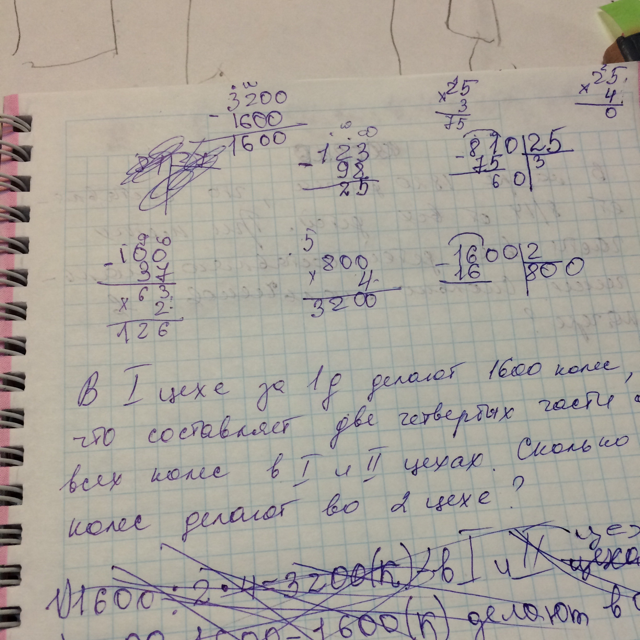 3200
- 1600
1600
123
- 98
25
25
× 3
75
25
× 4
0
- 810 25
75 3
60
100
- 37
63
× 2
126
5
800
× 4
3200
- 1600 2
16 800
В I цехе за 1д делают 1600 колес,
что составляет две четвертых части
всех колес в I и II цехах. Сколько
колес делают во 2 цехе?
1) 1600 : 2 · 4 = 3200 (к) в I и II
1600 (к) делают в